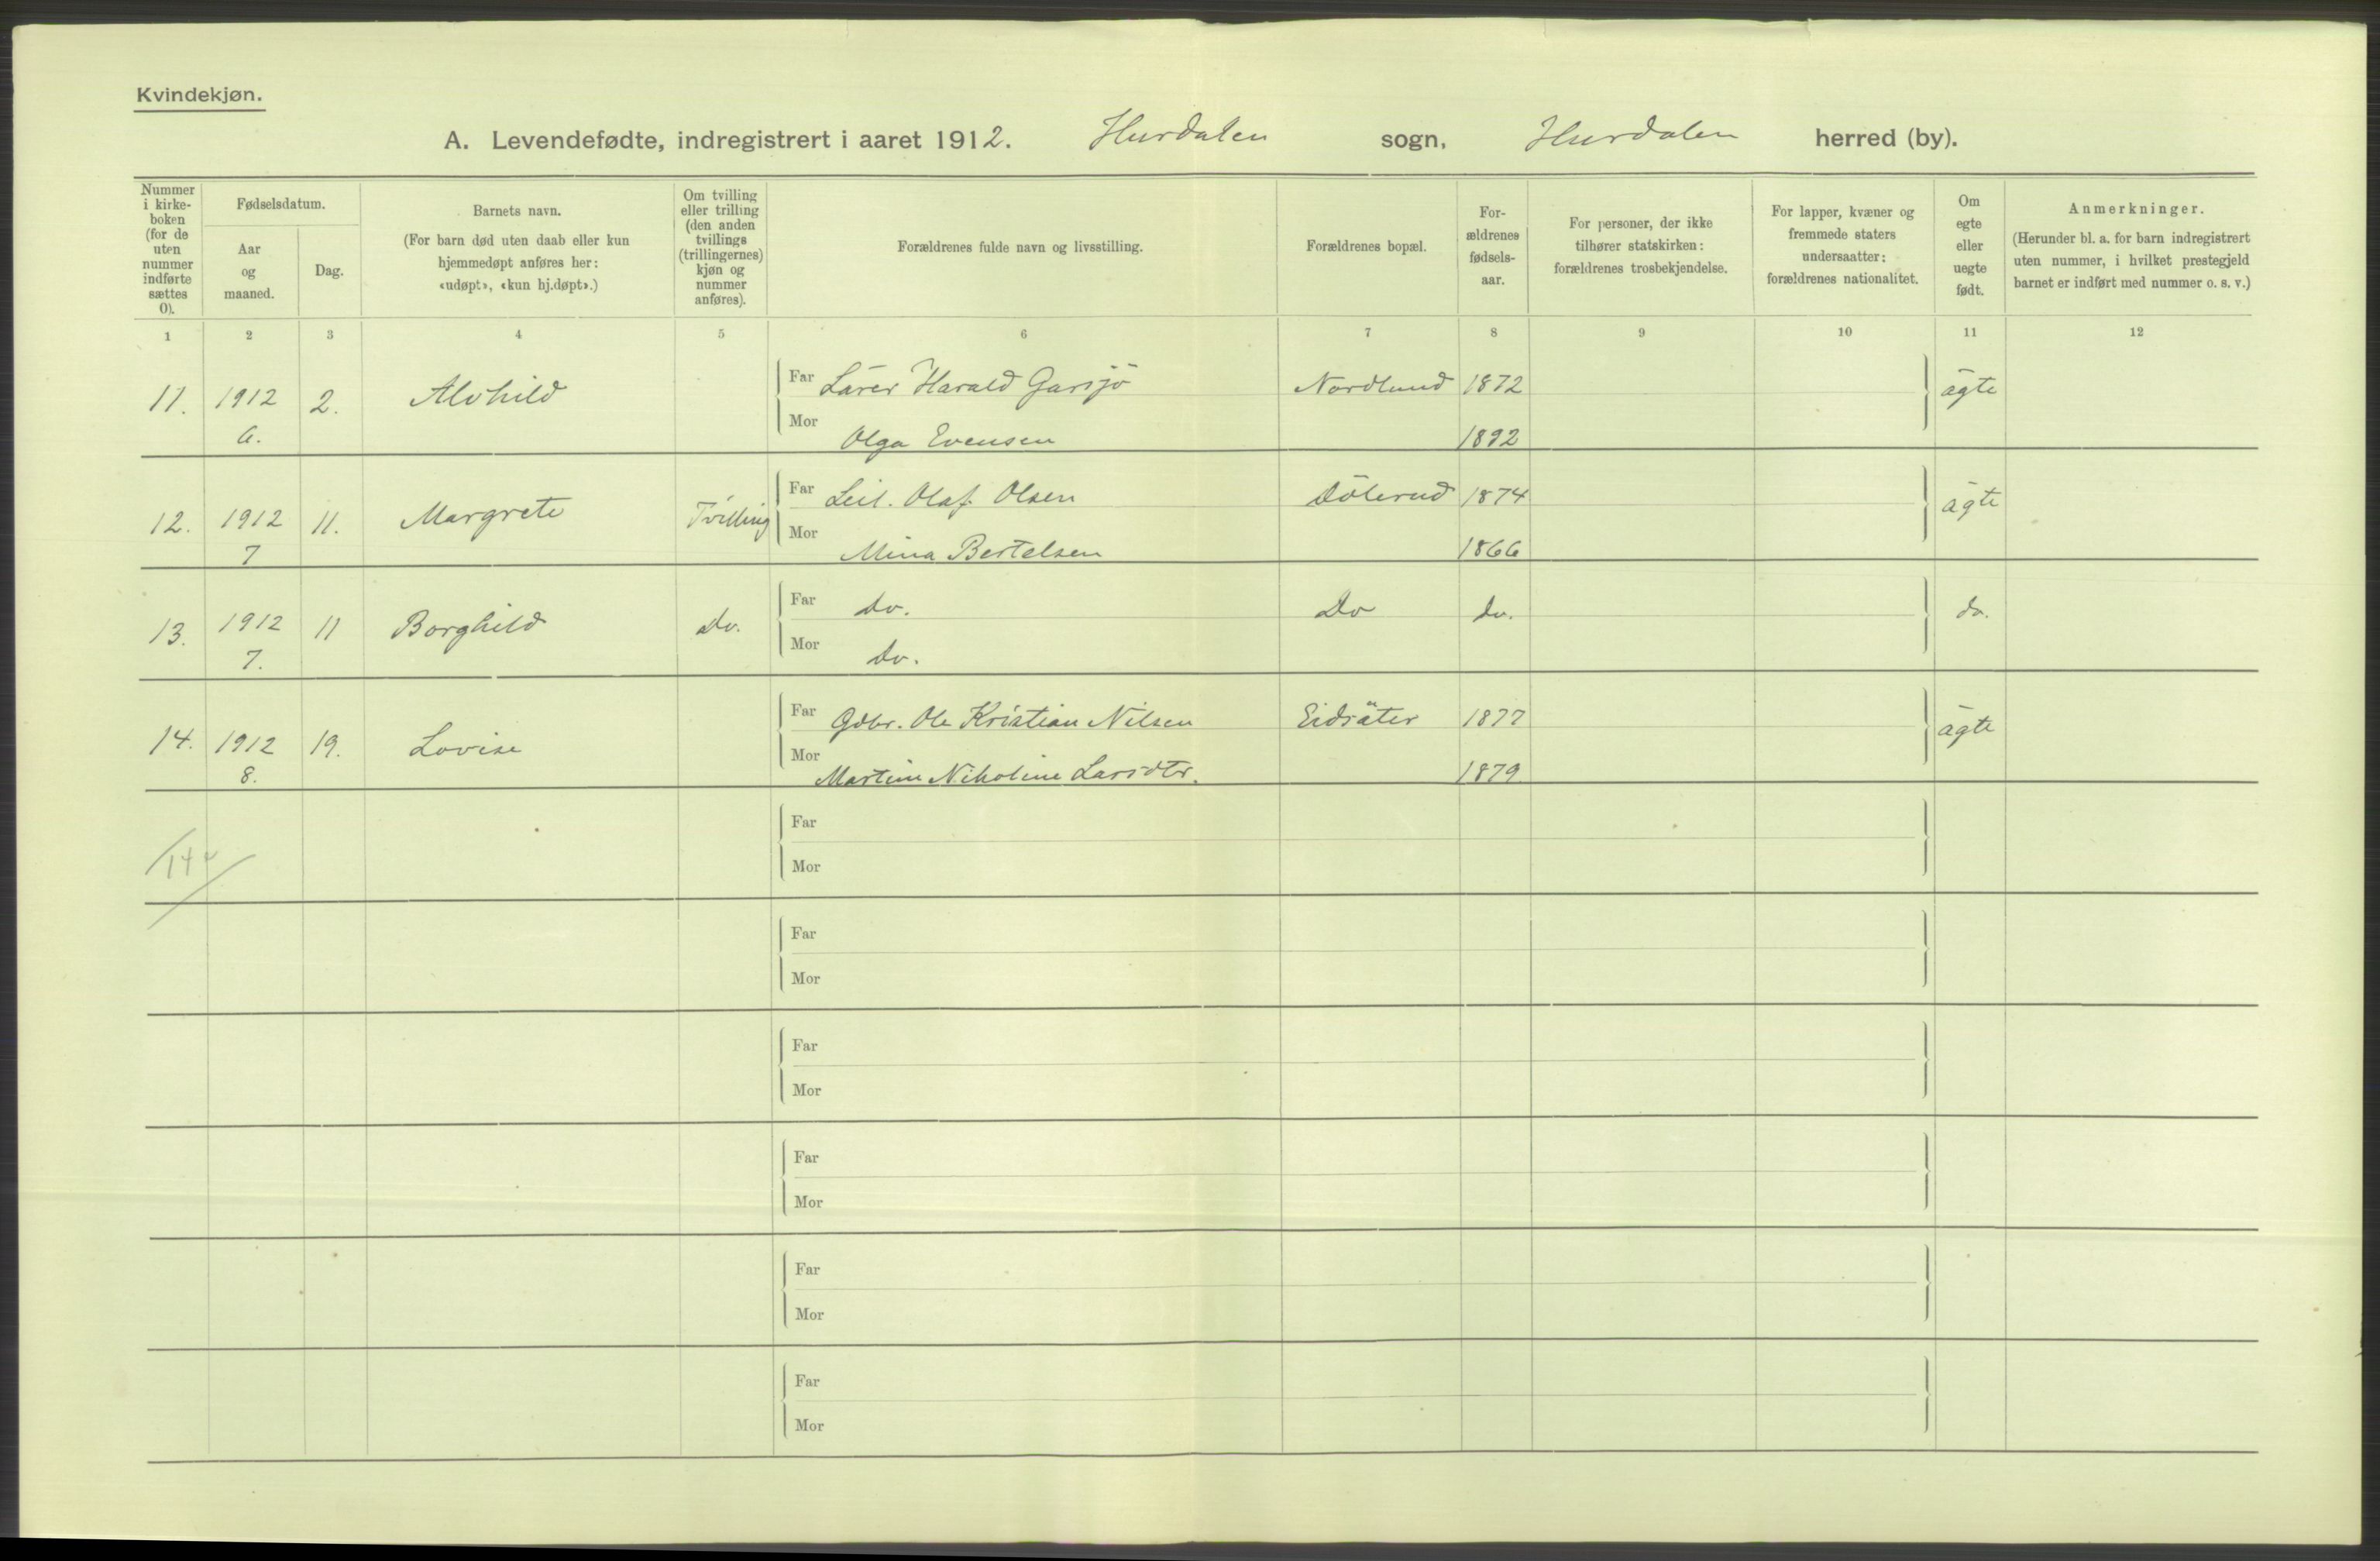 Kvindekjøn.
A. Levendefødte, indregistrert i aaret 1912. Hurdalen sogn, Hurdalen herred (by).
Nummer i kirke-boken (for de uten nummer indførte sættes 0).
Fødselsdatum.
Aar og maaned.
Dag.
Barnets navn.
(For barn død uten daab eller kun hjemmedøpt anføres her: «udøpt», «kun hj.døpt».)
Om tvilling eller trilling (den anden tvillings (trillingernes) kjøn og nummer anføres).
Forældrenes fulde navn og livsstilling.
Forældrenes bopæl.
For-ældrenes fødsels-aar.
For personer, der ikke tilhører statskirken: forældrenes trosbekjendelse.
For lapper, kvæner og fremmede staters undersaatter: forældrenes nationalitet.
Om egte eller uegte født.
Anmerkninger.
(Herunder bl. a. for barn indregistrert uten nummer, i hvilket prestegjeld barnet er indført med nummer o. s. v.)
1 2 3 4 5 6 7 8 9 10 11 12
11. 1912 2. Alvhild Far Lärer Harald Garsjö Nordlund 1872 ägte
6. Mor Olga Evensen 1892
12. 1912 11. Margrete Tvilling Far Leil. Olaf Olsen Dölerud 1874 ägte
7 Mor Mina Bertelsen 1866
13. 1912 11 Borghild do. Far do. Do do. do.
7. Mor do.
14. 1912 19. Lovise Far Gdbr. Ole Kristian Nilsen Eidsäter 1877 ägte
8. Mor Martine Nikoline Larsdtr. 1879
14
Far
Mor
Far
Mor
Far
Mor
Far
Mor
Far
Mor
Far
Mor